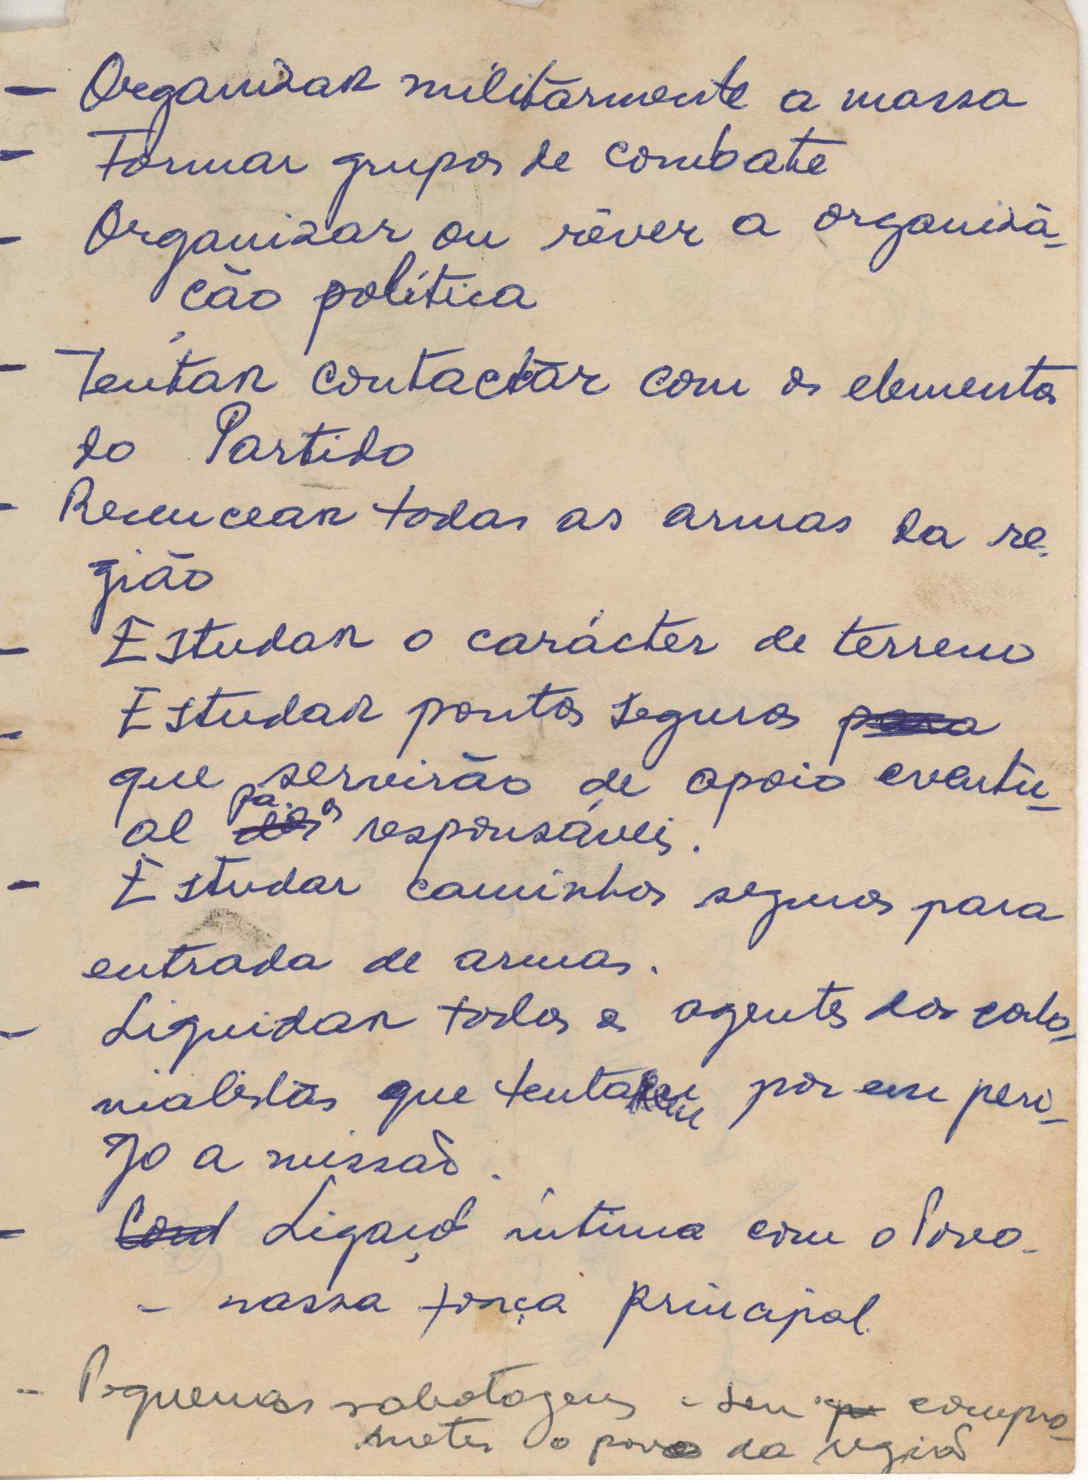 - Organizar militarmente a massa
- Formar grupos de combate
- Organizar ou rêver a organiza-
ção política
- Tentar contactar com os elementos
do Partido
- Recencear todas as armas da re-
gião
- Estudar o carácter de terreno
- Estudar pontos seguros para
que servirão de apoio eventu-
al dos pa. os responsáveis.
- Estudar caminhos seguros para
entrada de armas.
- Liquidar todos os agentes dos colo-
nialistas que tentarem por em peri-
go a missão.
- Cond Ligação íntima com o Povo -
- nassa força principal.
- Pequenas sabotagens - sem compro-
meter o povo da região